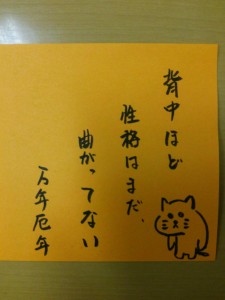 背中ほど
性格はまだ、
曲がってない
万年厄年